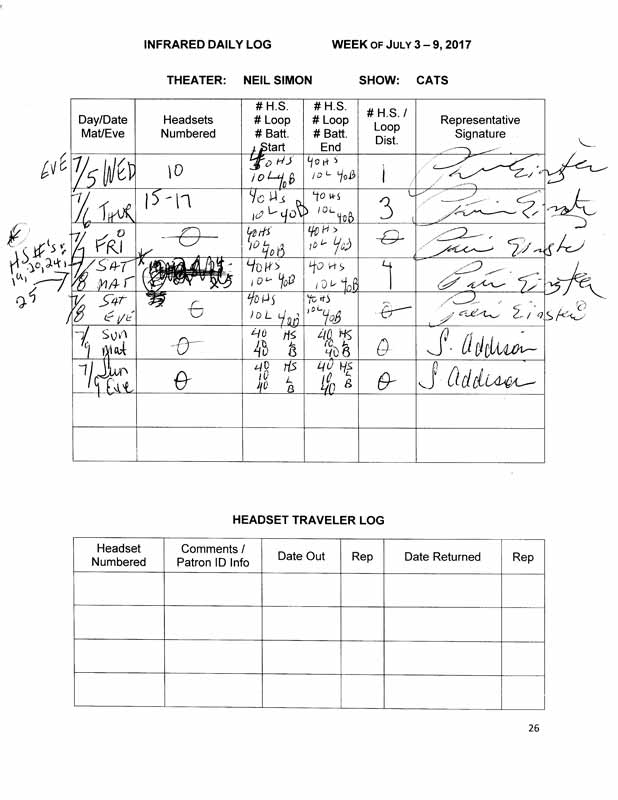 INFRARED DAILY LOG WEEK OF JULY 3 – 9, 2017
THEATER: NEIL SIMON SHOW: CATS
Day/Date Mat/Eve
Headsets Numbered
# H.S. # Loop # Batt. Start
# H.S. # Loop # Batt. End
# H.S. / Loop Dist.
Representative Signature
EVE 7/5 WED 10 40 HS 10 L 40B 40 HS 10 L 40B 1
7/6 THUR 15-17 40 HS 10 L 40B 40 HS 10 L 40B 3
7/7 FRI 0 40 HS 10 L 40B 40 HS 10 L 40B 0 Einste
* HS #'s: 19, 20, 24, 25
7/8 SAT MAT * 40 HS 10 L 40B 40 HS 10 L 40B 4 Einster
7/8 SAT EVE 0 40 HS 10 L 40B 40 HS 10 L 40B 0
7/9 Sun Mat 0 40 HS 10 L 40 B 40 HS 10 L 40 B 0 S. Addison
7/9 Sun Eve 0 40 HS 10 L 40 B 40 HS 10 L 40 B 0 S Addison
HEADSET TRAVELER LOG
Headset Numbered
Comments / Patron ID Info
Date Out
Rep
Date Returned
Rep
26